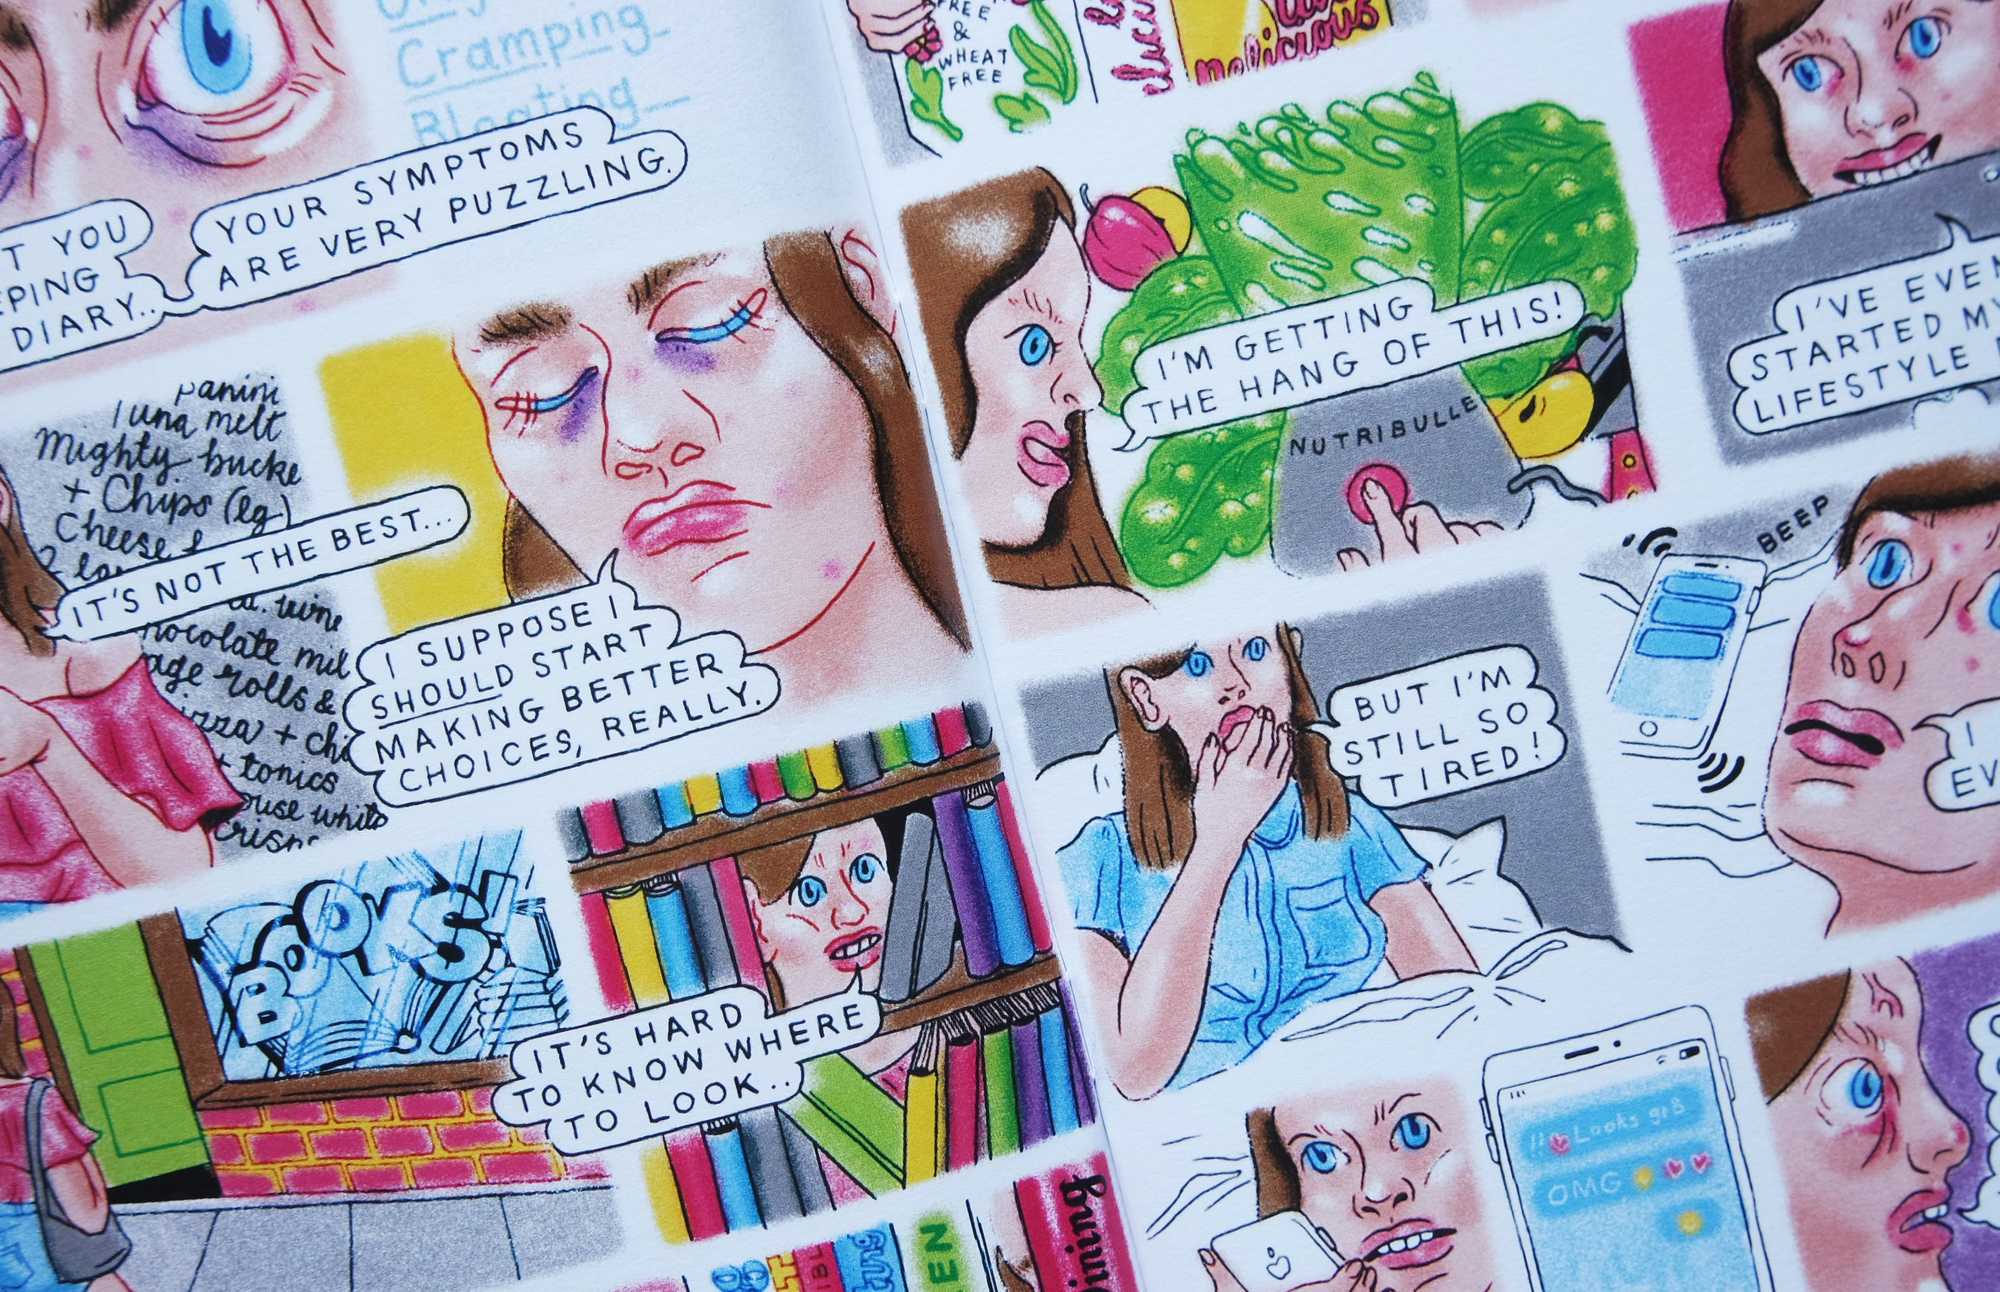 Cramping
Bloating
YOU
DIARY..
YOUR SYMPTOMS
ARE VERY PUZZLING.
panini
Tuna melt
Mighty bucke
+ Chips (lg)
Cheese &
IT'S NOT THE BEST...
wine
rolls &
+ chi
+ tonics
house white
crisps
I SUPPOSE I
SHOULD START
MAKING BETTER
CHOICES, REALLY.
BOOKS!
IT'S HARD
TO KNOW WHERE
TO LOOK..
FREE
&
WHEAT
FREE
I'M GETTING
THE HANG OF THIS!
NUTRIBULLE
I'VE EVEN
STARTED MY
LIFESTYLE
BUT I'M
STILL SO
TIRED!
BEEP
I
EV
!! Looks gr8
OMG